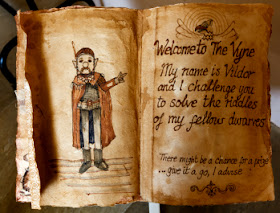 Welcome to The Vyne
My name is Vildor
and I challenge you
to solve the riddles
of my fellow dwarves.
There might be a chance for a prize
... give it a go, I advise